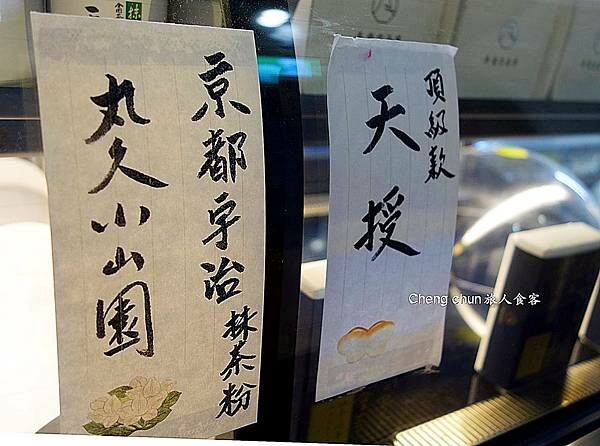 京都宇治抹茶粉
丸久小山園
頂級款
天授
Cheng chun旅人食客